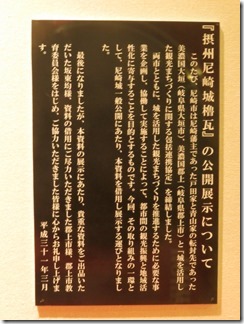 『摂州尼崎城檜瓦』の公開展示について
このたび、尼崎市は尼崎藩主であった戸田家と青山家の転封先であった
美濃国大垣(岐阜県大垣市)、美濃国郡上(岐阜県郡上市)と「城を活用し
た観光まちづくりに関する包括連携協定」を締結しました。
両市とともに、城を活用した観光まちづくりを推進するために必要な事
業を企画し、協働して実施することによって、都市間の観光振興と地域活
性化に寄与することを目的とするものです。今回、その取り組みの一環と
して、尼崎城一般公開にあたり、本資料を借用し展示する運びとなりまし
た。
最後になりましたが、本展示にあたり、貴重な資料をご出品いた
だいた坂東均様、資料の借用にご尽力いただきました郡上市様、郡上市教
育委員会様をはじめ、ご協力いただきました皆様に心からお礼申し上げま
す。
平成三十一年三月